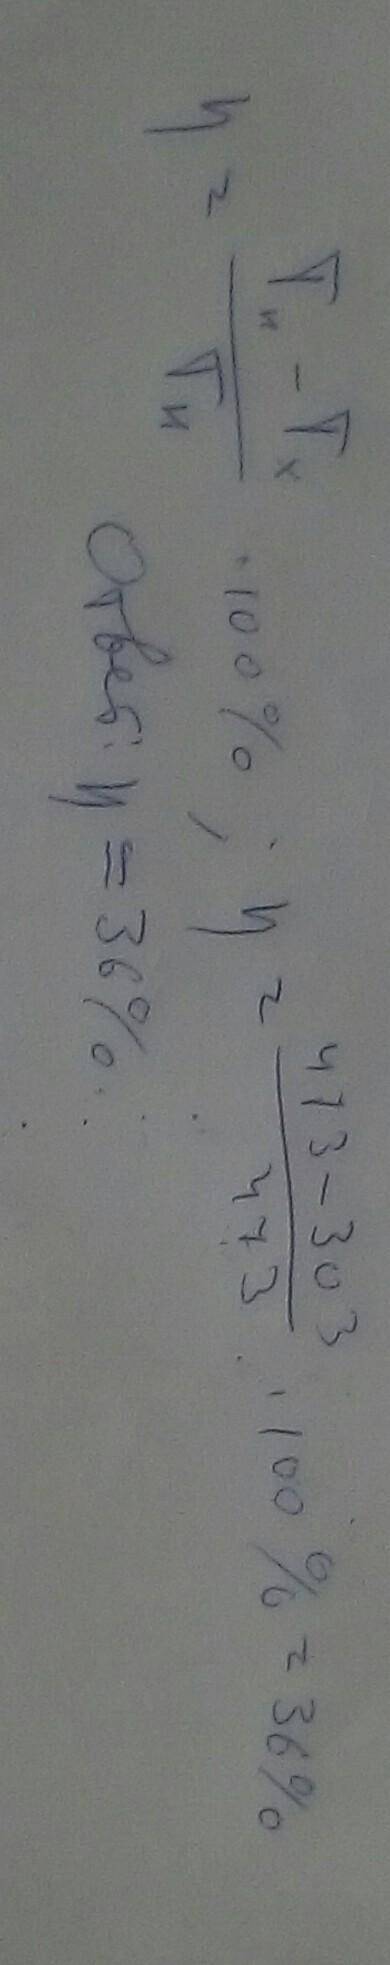 η = (Tн - Tх)/Tн · 100% ; η = (473 - 303)/473 · 100% = 36%
Ответ: η = 36%.